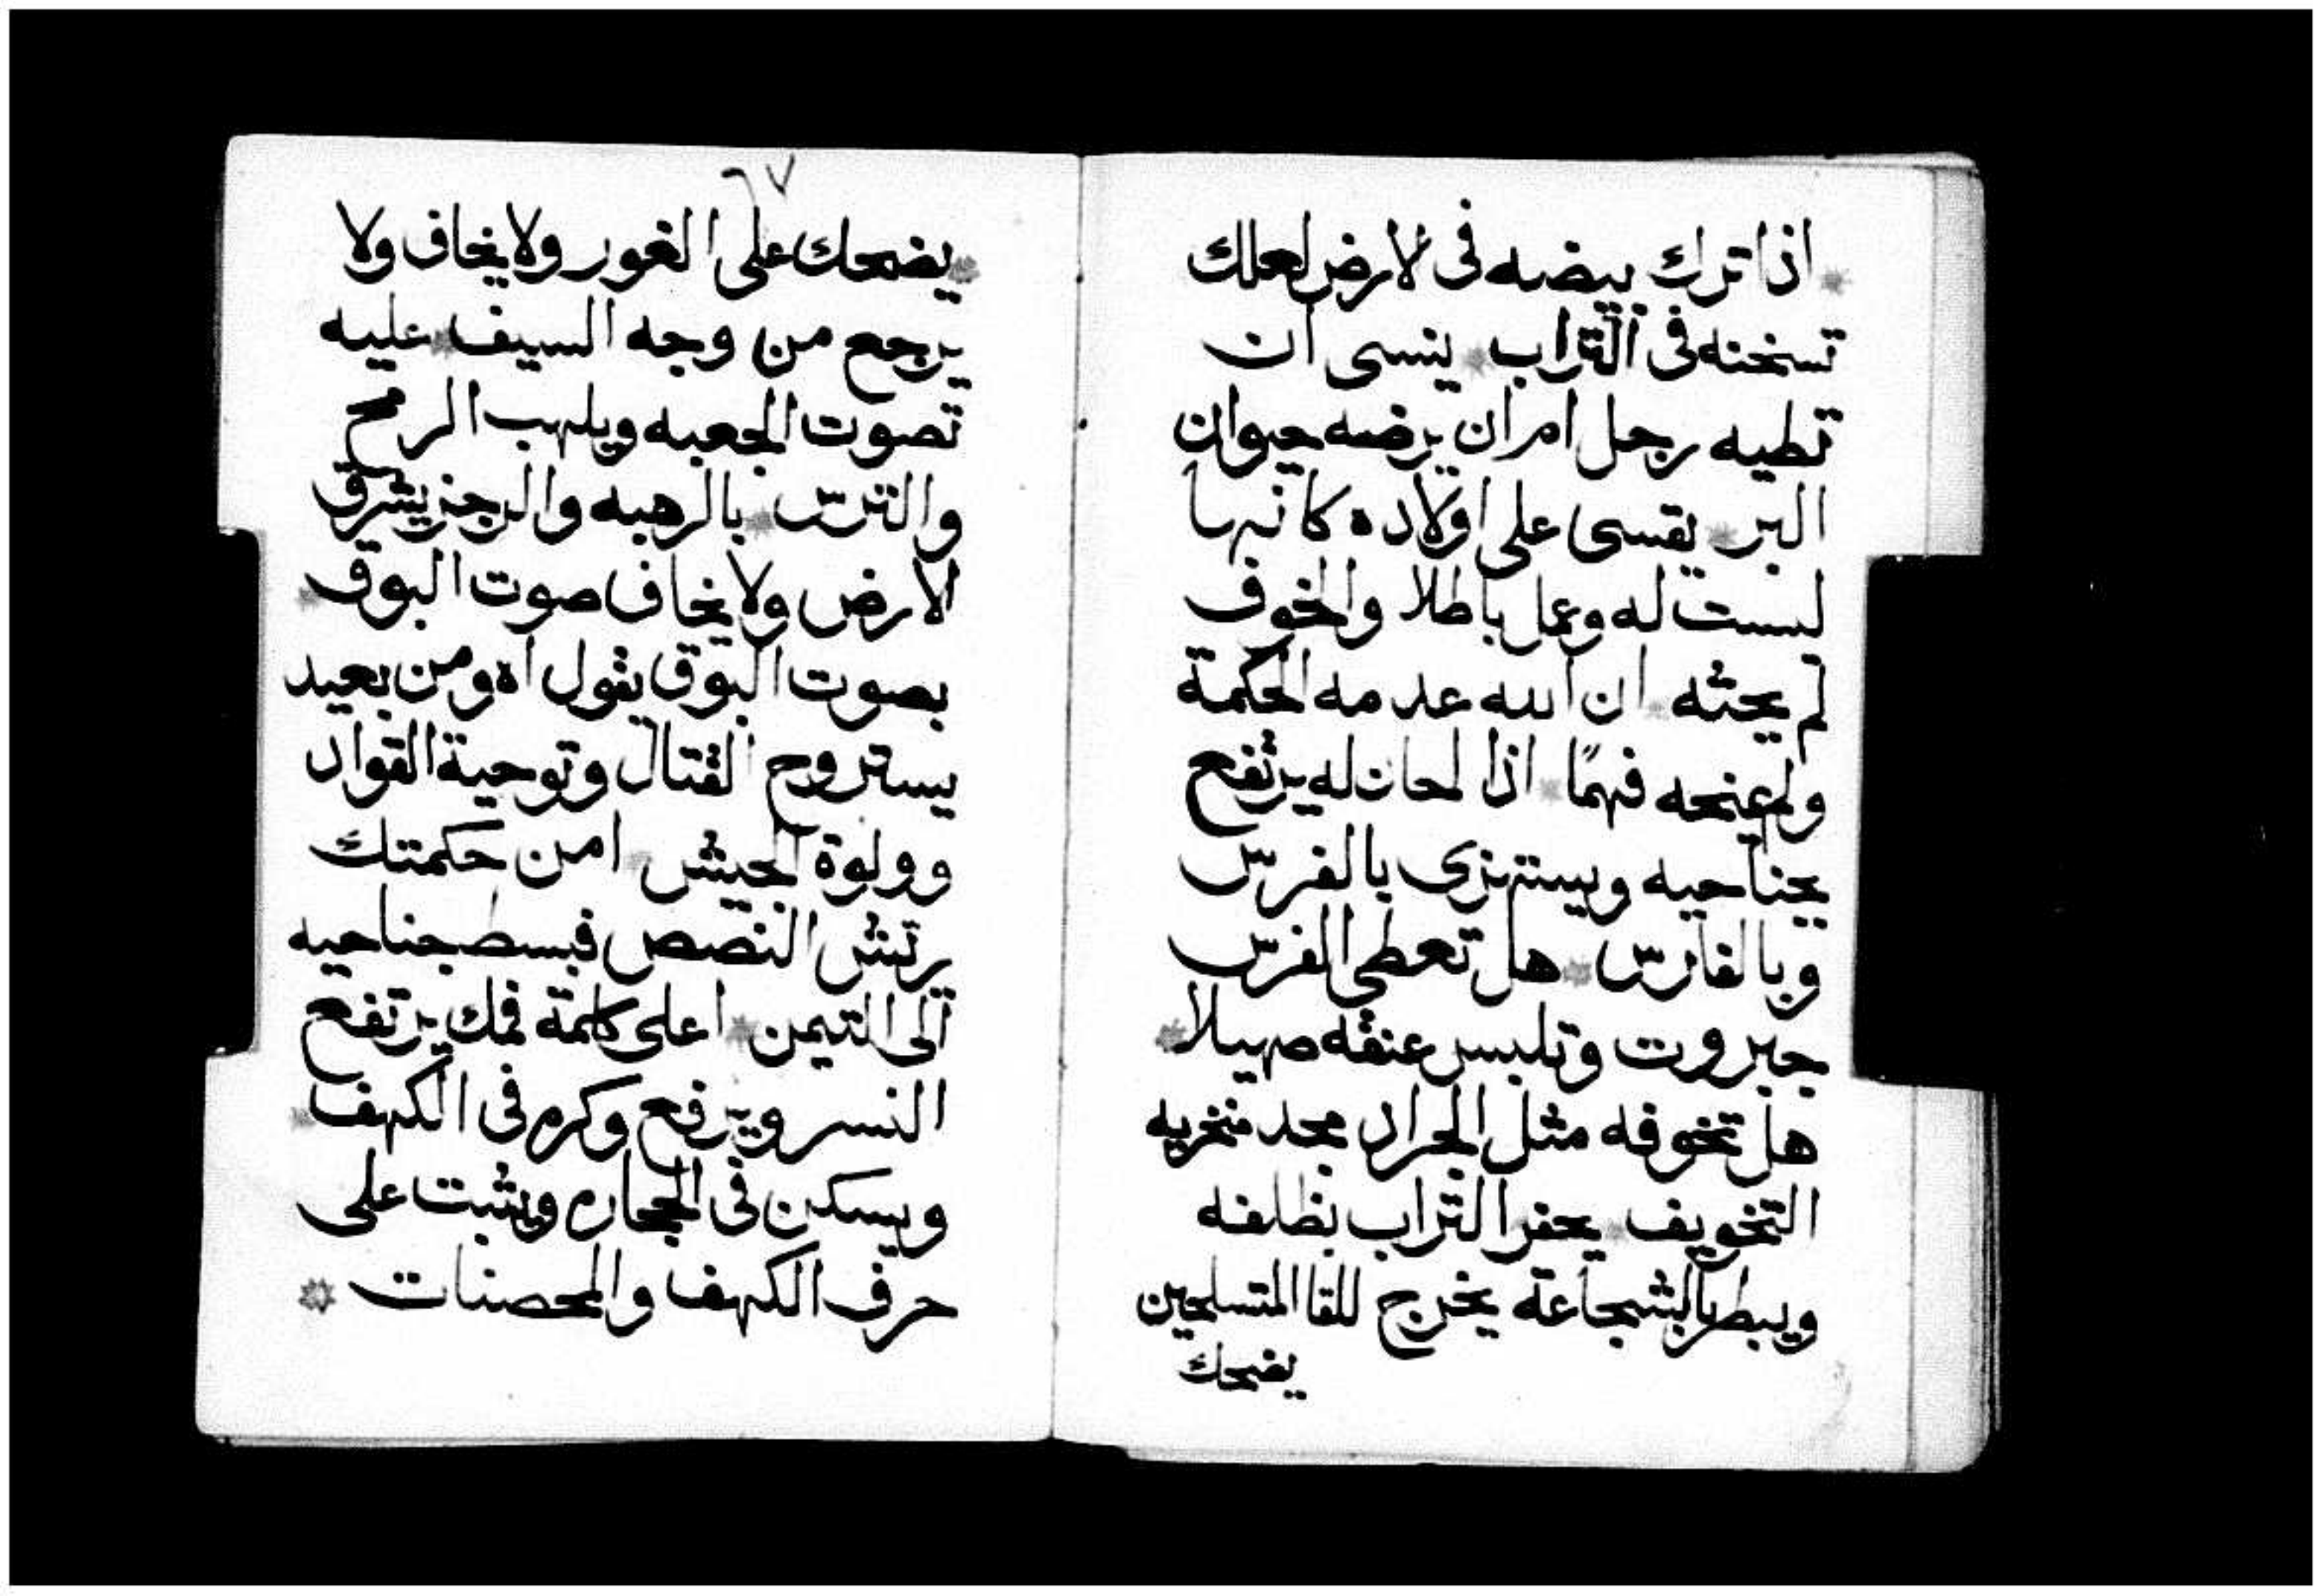 اذا ترك بيضه فى لارض لعلك
تسخنه فى التراب ينسى ان
تطيه رجل امر ان يرضه حيوان
البر يقسى على اولاده كانها
ليست له وعمل باطلا والخوف
لم يحثه ان الله عدمه الحكمة
ولم يمنحه فهمًا اذا لحان له يرتفع
بجناحيه ويستهزى بالفرس
وبالفارس هل تعطى الفرس
جبروت وتلبس عنقه صهيلا
هل تخوفه مثل الجراد مجد منخريه
التخويف يحفر التراب بظلفه
ويبطر بالشجاعة يخرج للقا المتسلحين
يضحك
٦٧
يضحك على الغور ولا يخاف ولا
يرجع من وجه السيف عليه
تصوت الجعبه ويلهب الرمح
والترس بالرهبه والرجز يشرق
الارض ولا يخاف صوت البوق
بصوت البوق يقول اه ومن بعيد
يستروح القتال وتوحية القواد
وولوة الجيش امن حكمتك
يرتش النصص فبسط جناحيه
الى التيمن اعلى كلمة فمك يرتفع
النسر ويرفع وكره فى الكهف
ويسكن فى الحجاره ويثبت على
حرف الكهف والمحصنات